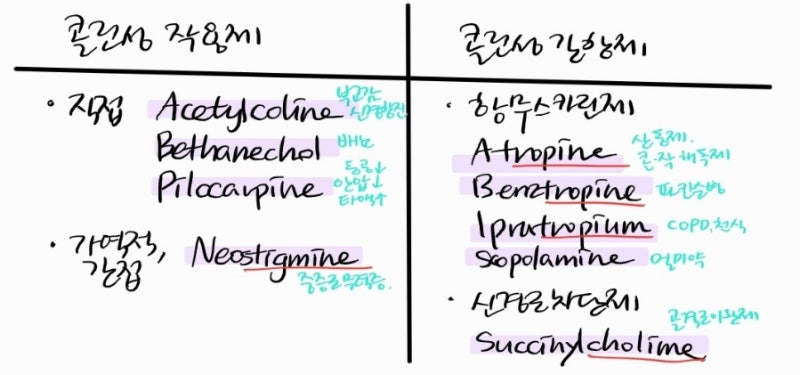 콜린성 작용제
콜린성 길항제
· 직접 Acetylcoline 부교감 신경항진
Bethanechol 배뇨
Pilocarpine 동공↓ 안압↓ 타액↑
· 가역적, 간접 Neostigmine
중증근무력증.
· 항무스카린제
Atropine 살통제. 콜·작 해독제
Benztropine 파킨슨병
Ipratropium COPD, 천식
scopolamine 멀미약
· 신경근차단제
Succinylcholime 골격근이완제